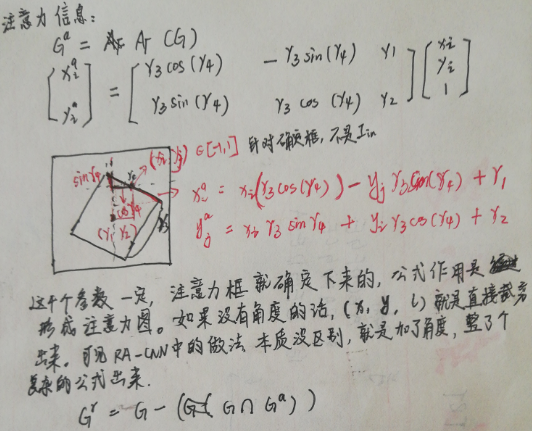 注意力信息:
Gᵃ = Ar (G)
[xᵢᵃ yᵢᵃ] = [γ3cos(γ4) -γ3sin(γ4) γ1 γ3sin(γ4) γ3cos(γ4) γ2] [xᵢ yᵢ 1]
∈[-1,1] 针对确定框,不是Iin
sinγ4
xᵢᵃ = xᵢ(γ3cos(γ4)) - yⱼ γ3sin(γ4) + γ1
(γ1 γ2)
yⱼᵃ = xᵢ γ3 sinγ4 + yᵢ γ3 cos(γ4) + γ2
这个参数一定,注意力框就确定下来的,公式作用是
形成注意力图。如果没有角度的话,(x, y, l)就是直接裁剪
出来。可见RA-CNN中的做法本质没区别,就是加了角度,整了个
复杂的公式出来.
Gʳ = G - (G∩Gᵃ)